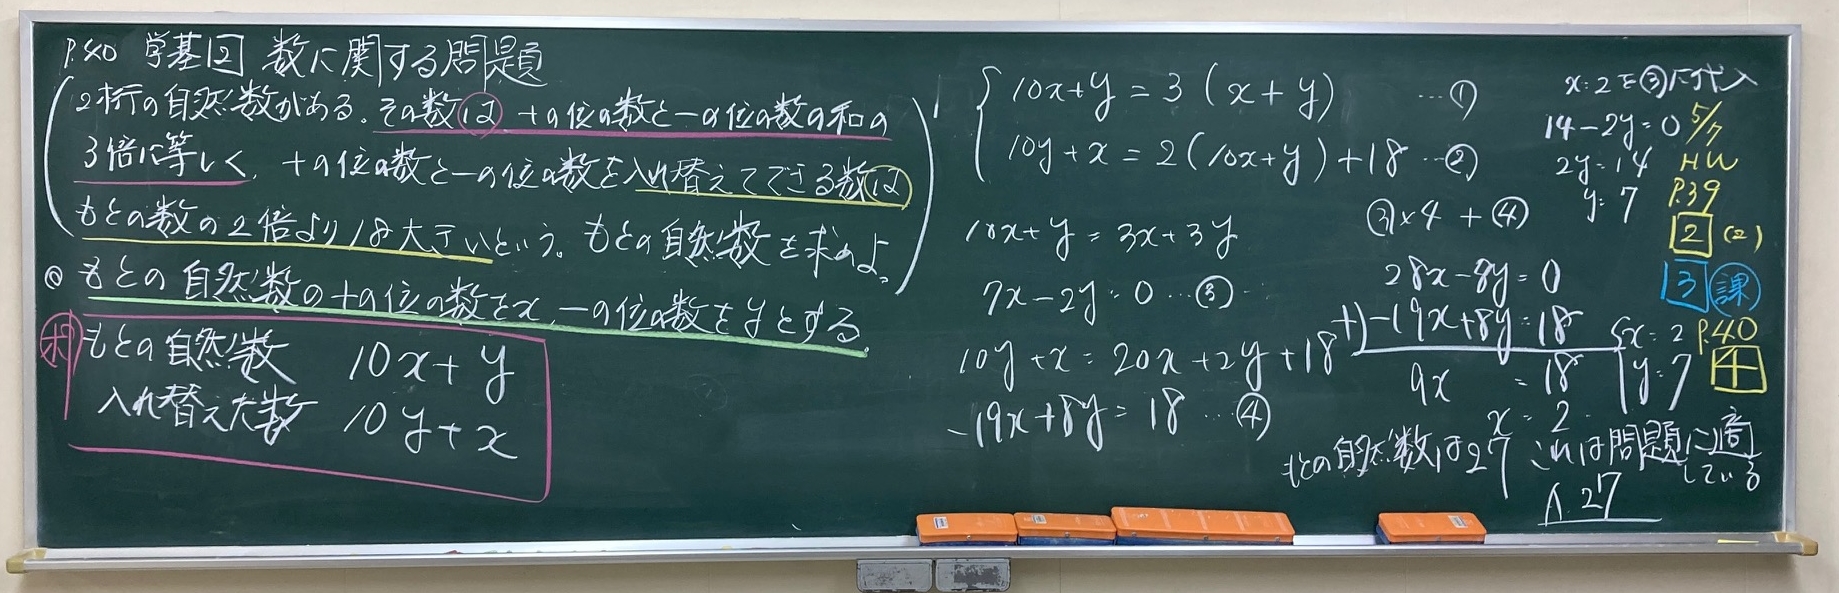 P.40 学基 2 数に関する問題
2桁の自然数がある。その数は、十の位の数と一の位の数の和の
3倍に等しく、十の位の数と一の位の数を入れ替えてできる数は
もとの数の2倍より18大きいという。もとの自然数を求めよ。
◎ もとの自然数の十の位の数をx、一の位の数をyとする。
ポ もとの自然数 10x+y
入れ替えた数 10y+x
10x+y=3(x+y) …①
10y+x=2(10x+y)+18 …②
10x+y=3x+3y
7x-2y=0 …③
10y+x=20x+2y+18
-19x+8y=18 …④
③×4+④
28x-8y=0
+) -19x+8y=18
9x =18
x=2
x=2を③に代入
14-2y=0
2y=14
y=7
x=2
y=7
もとの自然数は27 これは問題に適
している
A. 27
5/7
HW
P.39
2 (2)
3 課
P.40